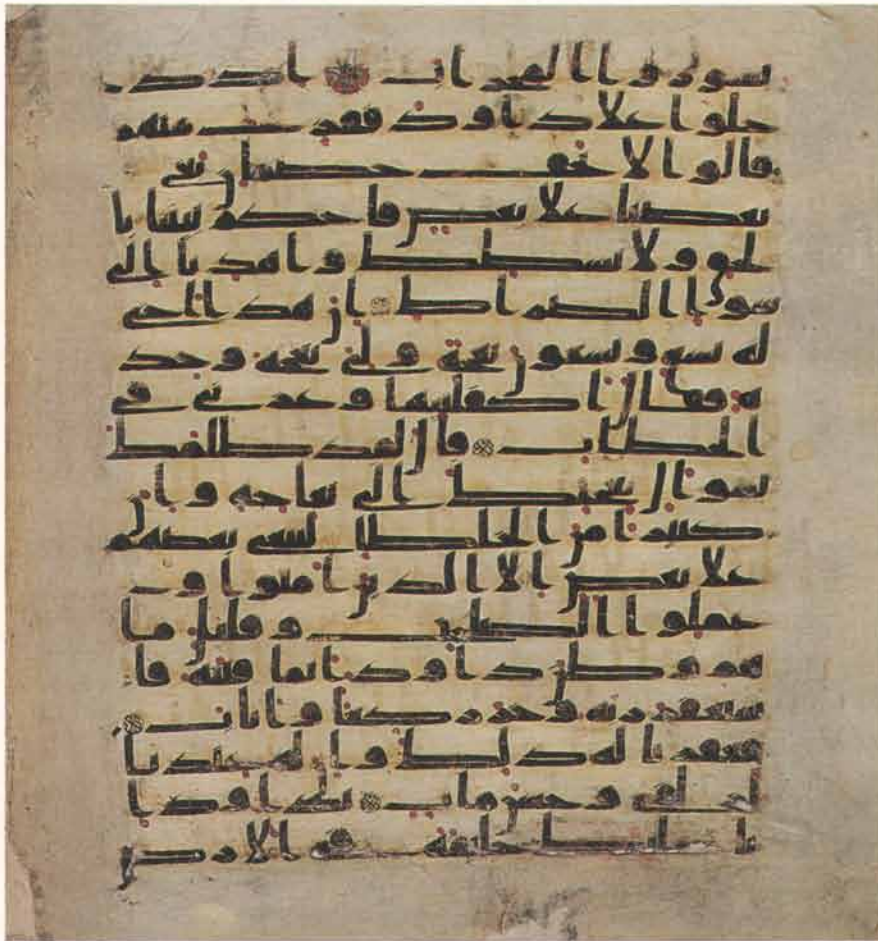 سوروا المحراب اذ د
خلوا علا داود ففزع منهم
قالوا لا تخف خصمان بغى
بعضنا علا بعض فاحكم بيننا با
لحق ولا تشطط واهدنا الى
سوا الصراط ان هذا اخى
له تسع وتسعون نعجة ولى نعجة وحد
ة فقال اكفلنيها وعزنى فى
الخطاب قال لقد ظلمك
بسوال نعجتك الى نعاجه وان
كثيرا من الخلطا ليبغى بعضهم
علا بعض الا الذين امنوا و
عملوا الصلحت وقليل ما
هم وظن داود انما فتنه فا
ستغفر ربه وخر ركعا واناب
فغفرنا له ذلك وان له عندنا
لزلفى وحسن ماب يداود ا
نا جعلنك خليفة فى الارض